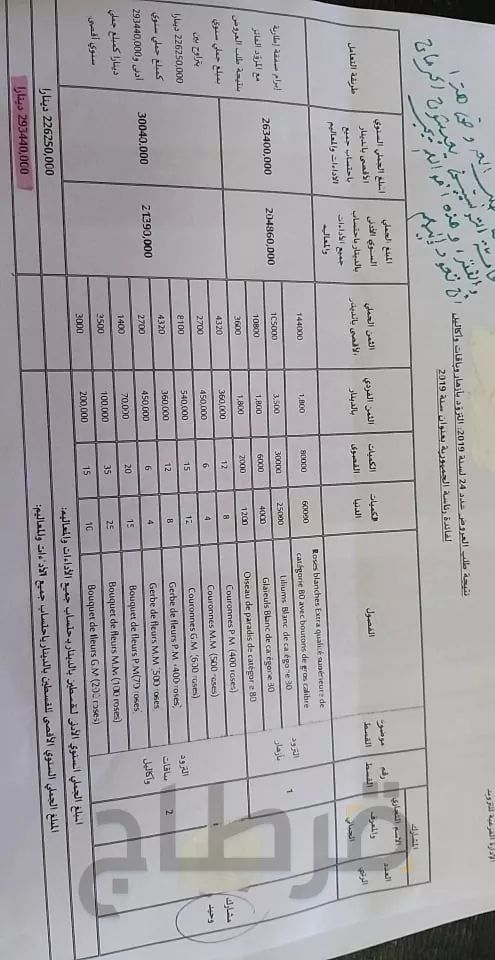 الإدارة الفرعية للتزويد
نتيجة طلب العروض عدد 24 لسنة 2019: التزود بأزهار وباقات وأكاليل
لفائدة رئاسة الجمهورية بعنوان سنة 2019
المشارك
العدد الرتبي
الاسم التجاري والمعرف الجبائي
رقم القسط
موضوع القسط
الفصول
الكميات الدنيا
الكميات القصوى
الثمن الفردي بالدينار
الثمن الجملي الأقصى بالدينار
المبلغ الجملي السنوي الأدنى بالدينار باحتساب جميع الأداءات والمعاليم
المبلغ الجملي السنوي الأقصى بالدينار باحتساب جميع الأداءات والمعاليم
طريقة التعامل
مشارك وحيد
1
التزود بأزهار
Roses blanches Extra qualité supérieure de catégorie 80 avec boutons de gros calibre 60000 80000 1,800 144000
Liliums Blanc de catégorie 80 25000 30000 3,500 105000
Glaïeuls Blanc de catégorie 80 4000 6000 1,800 10800
Oiseau de paradis de catégorie 80 1200 2000 1,800 3600
204860,000
263400,000
2
التزود باقات وأكاليل
Couronnes P.M (400 roses) 8 12 360,000 4320
Couronnes M.M (500 roses) 4 6 450,000 2700
Couronnes G.M (600 roses) 12 15 540,000 8100
Gerbe de fleurs P.M (400 roses) 8 12 360,000 4320
Gerbe de fleurs M.M (500 roses) 4 6 450,000 2700
Bouquet de fleurs P.M (70 roses) 15 20 70,000 1400
Bouquet de fleurs M.M (100 roses) 25 35 100,000 3500
Bouquet de fleurs G.M (200 roses) 10 15 200,000 3000
21390,000
30040,000
إبرام صفقة إطارية
مع المزود الفائز
بنتيجة طلب العروض
بمبلغ جملي سنوي
يتراوح بين
226250,000 دينارا
كمبلغ جملي سنوي
أدنى و293440,000
دينارا كمبلغ جملي
سنوي أقصى.
المبلغ الجملي السنوي الأدنى للقسطين بالدينار باحتساب جميع الأداءات والمعاليم: 226250,000 دينارا
المبلغ الجملي السنوي الأقصى للقسطين بالدينار باحتساب جميع الأداءات والمعاليم: 293440,000 دينارا
قرطاج